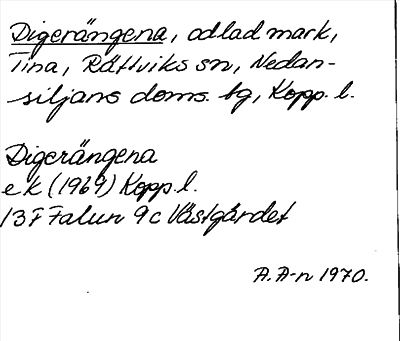 Digerängena, odlad mark,
Tina, Rättviks sn, Nedan-
siljans doms. tg, Kopp. l.
Digerängena
ek (1969) Kopp. l.
13F Falun 9c Västgårdet
A. A-n 1970.